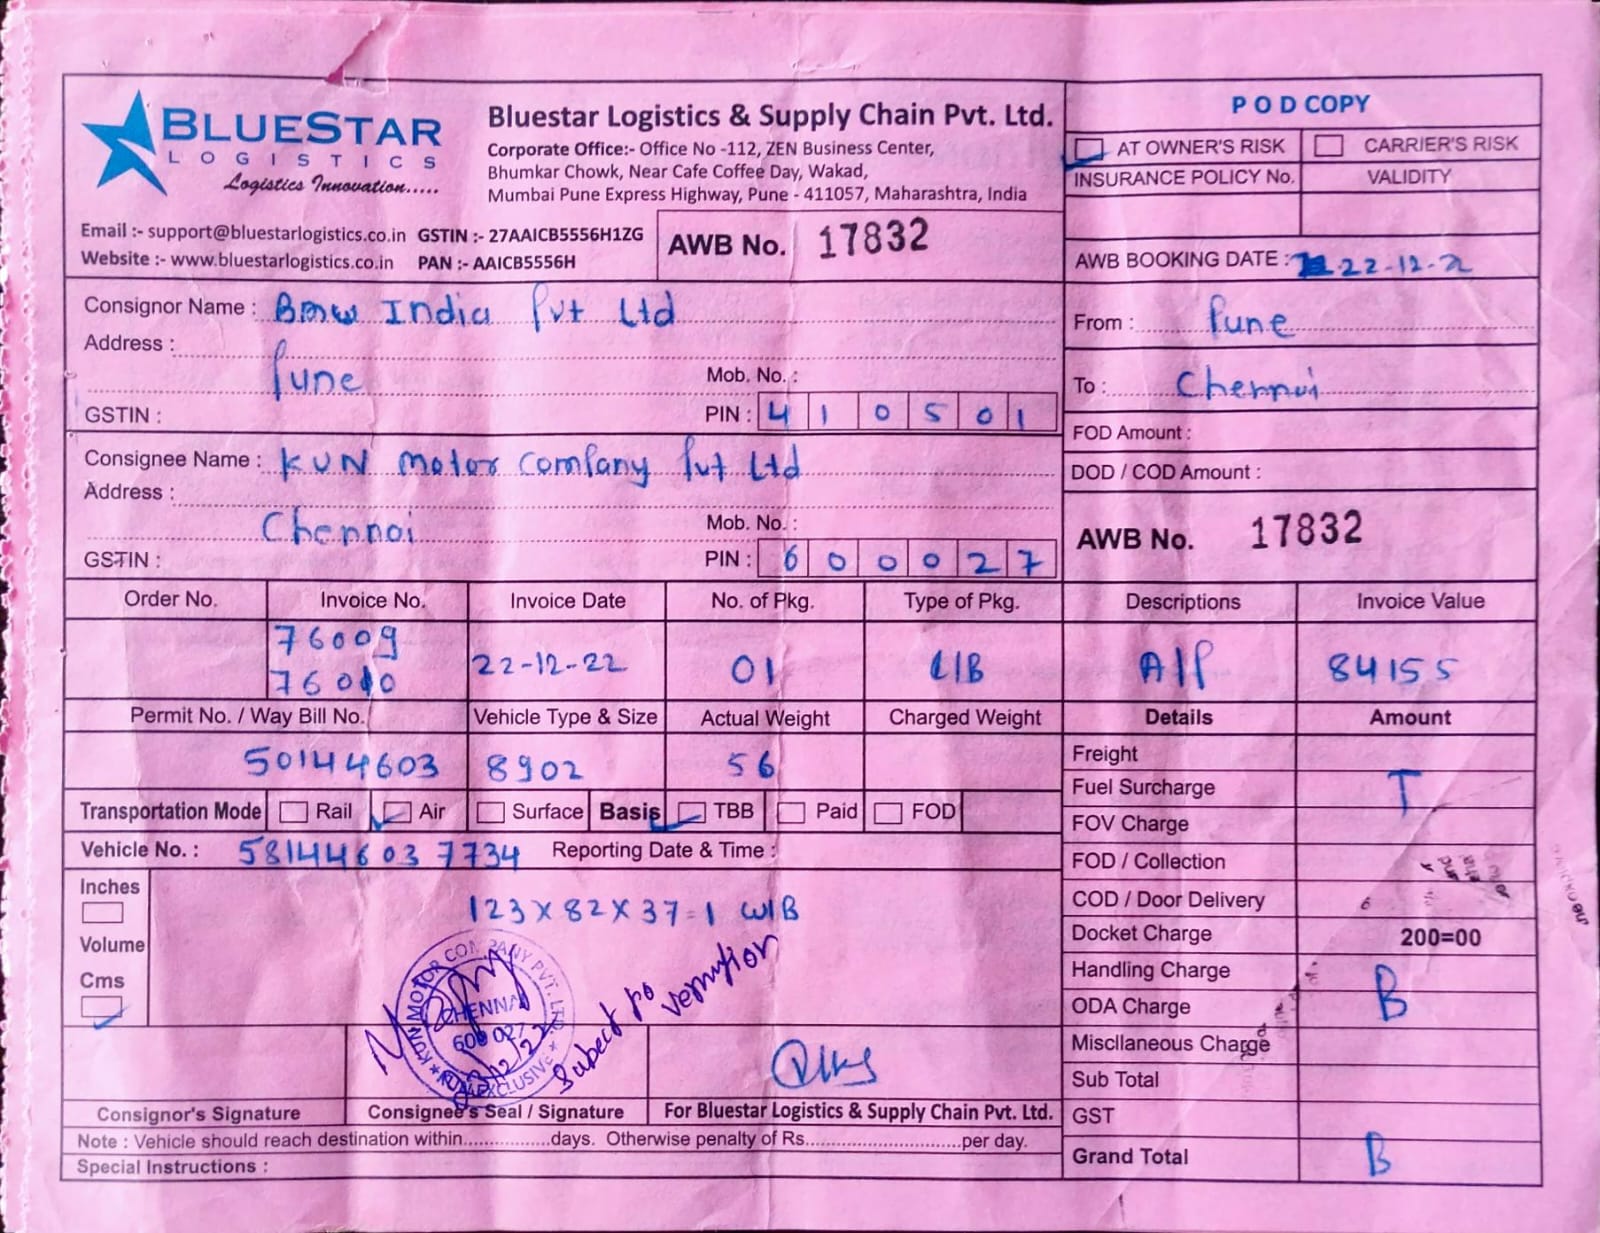 BLUESTAR
LOGISTICS
Logistics Innovation.....
Bluestar Logistics & Supply Chain Pvt. Ltd.
Corporate Office:- Office No -112, ZEN Business Center,
Bhumkar Chowk, Near Cafe Coffee Day, Wakad,
Mumbai Pune Express Highway, Pune - 411057, Maharashtra, India
Email :- support@bluestarlogistics.co.in GSTIN :- 27AAICB5556H1ZG
Website :- www.bluestarlogistics.co.in PAN :- AAICB5556H
AWB No. 17832
POD COPY
AT OWNER'S RISK CARRIER'S RISK
INSURANCE POLICY No. VALIDITY
AWB BOOKING DATE : 22-12-22
Consignor Name : BMW India Pvt Ltd
Address :
Pune
Mob. No. :
GSTIN : PIN : 410501
From : Pune
To : Chennai
Consignee Name : KUN Motor Company Pvt Ltd
Address :
Chennai
Mob. No. :
GSTIN : PIN : 600027
FOD Amount :
DOD / COD Amount :
AWB No. 17832
Order No. Invoice No. Invoice Date No. of Pkg. Type of Pkg. Descriptions Invoice Value
76009
76010 22-12-22 01 A/P 84155
Permit No. / Way Bill No. Vehicle Type & Size Actual Weight Charged Weight Details Amount
50144603 8902 56
Transportation Mode Rail Air Surface Basis TBB Paid FOD
Vehicle No. : 58144603 7734 Reporting Date & Time :
Inches
Volume
Cms
123 X 82 X 37 = 1 W/B
KUN MOTOR COMPANY PVT. LTD.
CHENNAI
600 027
Subject to
Freight
Fuel Surcharge T
FOV Charge
FOD / Collection
COD / Door Delivery
Docket Charge 200=00
Handling Charge
ODA Charge B
Miscllaneous Charge
Sub Total
GST
Grand Total B
Consignor's Signature Consignee's Seal / Signature For Bluestar Logistics & Supply Chain Pvt. Ltd.
Note : Vehicle should reach destination within...............days. Otherwise penalty of Rs............................per day.
Special Instructions :